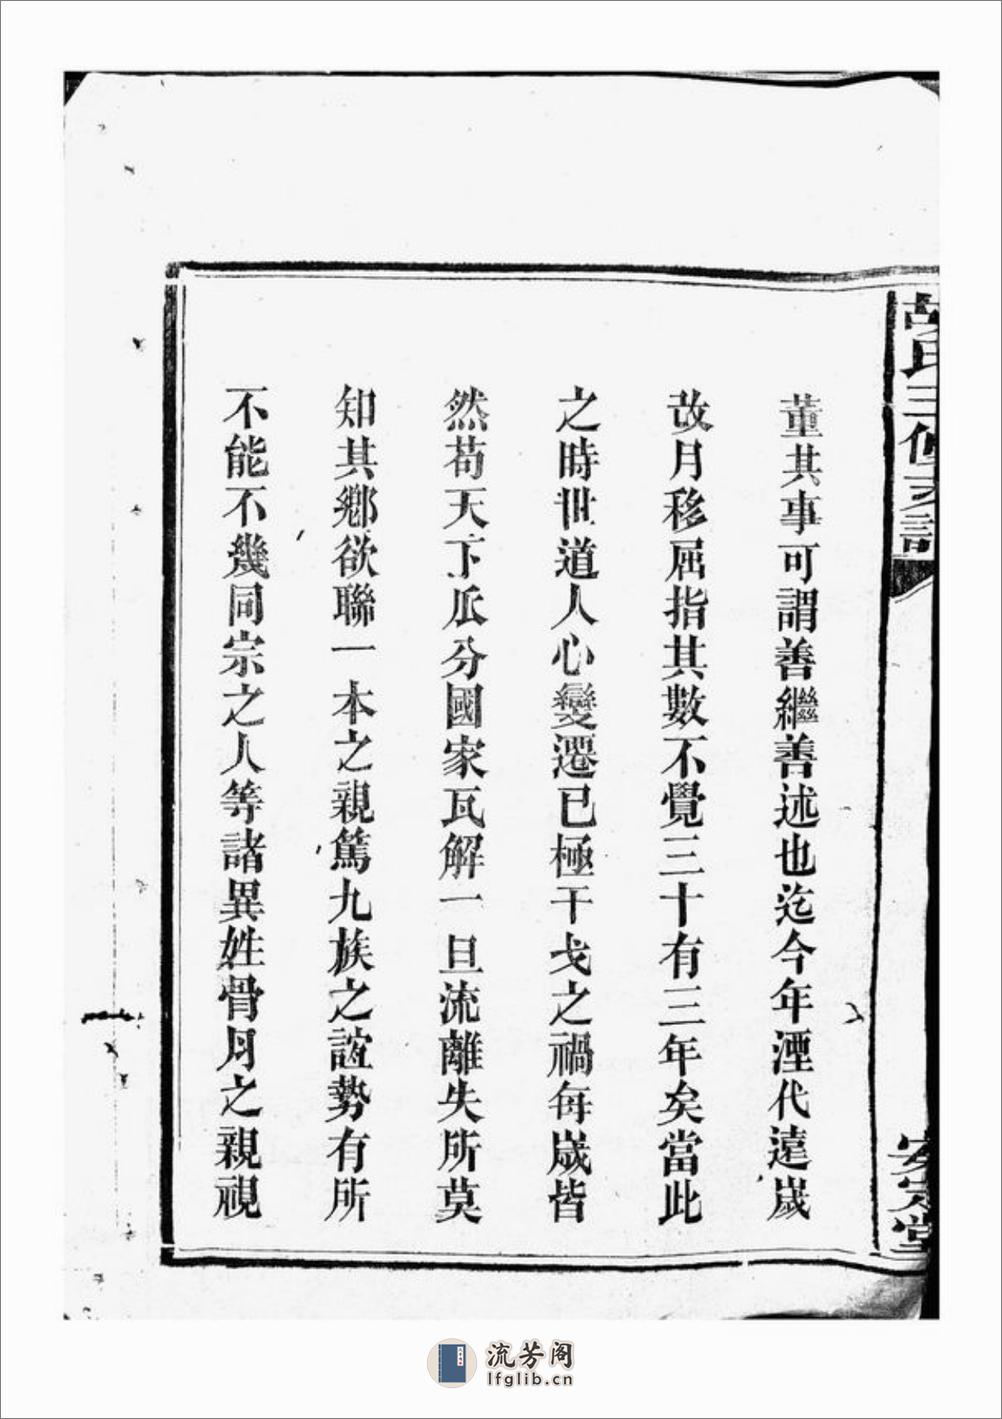 胡氏三修支譜
安定堂
董其事可謂善繼善述也迄今年湮代遠歲
故月移屈指其數不覺三十有三年矣當此
之時世道人心變遷已極干戈之禍每歲皆
然苟天下瓜分國家瓦解一旦流離失所莫
知其鄉欲聯一本之親篤九族之誼勢有所
不能不幾同宗之人等諸異姓骨月之親視
流芳阁
lfglib.cn